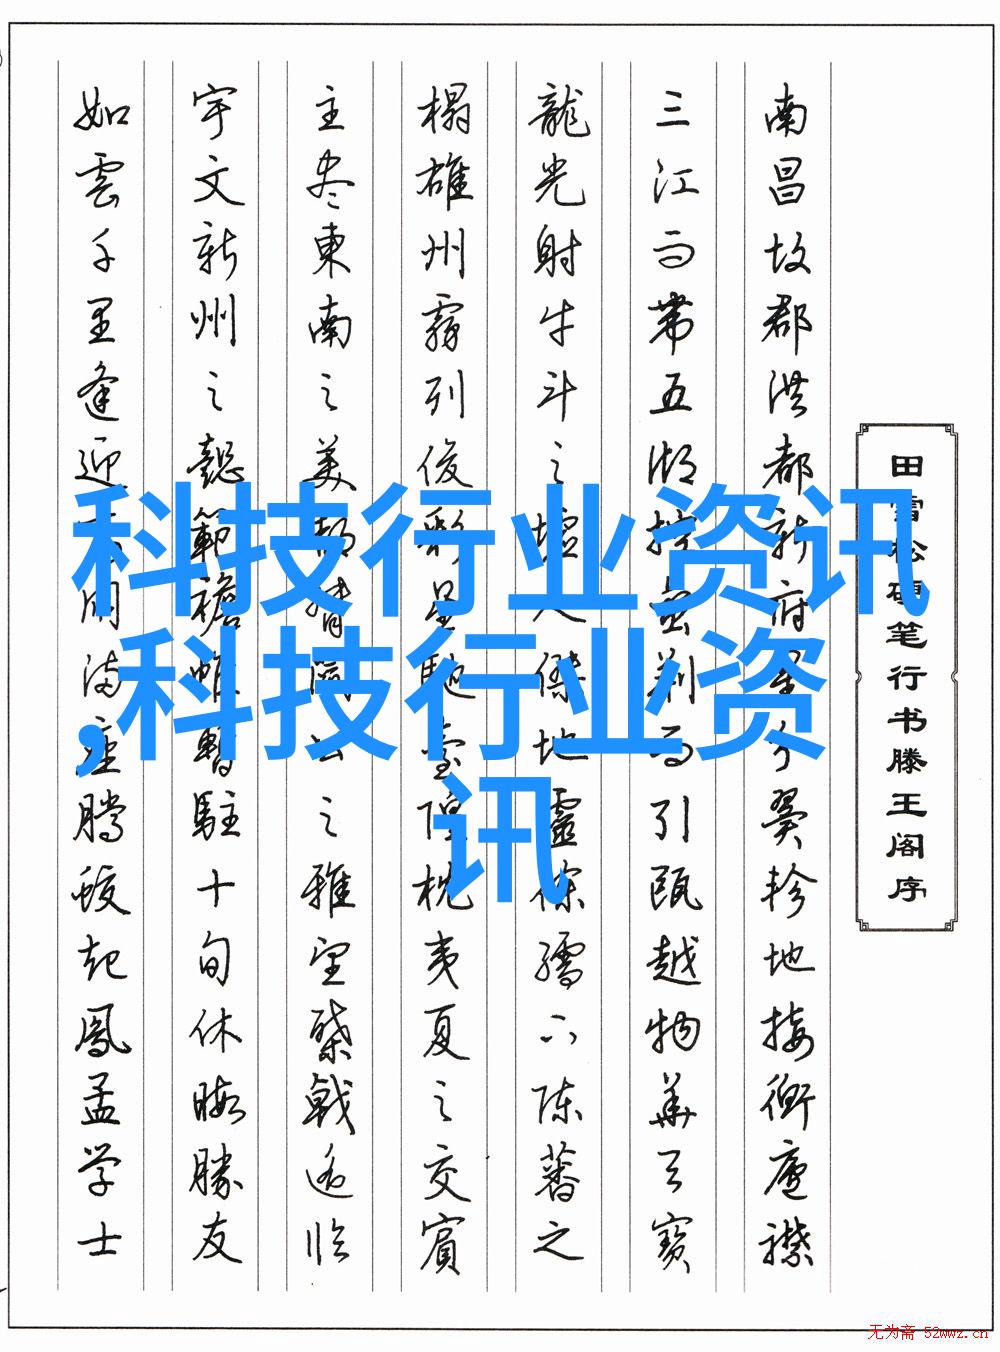 田雪松硬笔行书滕王阁序
南昌故郡洪都新府星分翼轸地接衡廬襟
三江而带五湖控蛮荆而引瓯越物華天寳
龍光射牛斗之墟人傑地靈徐孺下陈蕃之
榻雄州霧列俊彩星馳臺隍枕夷夏之交賓
主尽東南之美都督阎公之雅望棨戟遥临
宇文新州之懿範襜帷暫駐十旬休暇勝友
如雲千里逢迎高朋满座腾蛟起鳳孟学士
科技行业资讯
,科技行业资
讯
无为斋 52wwz.cn